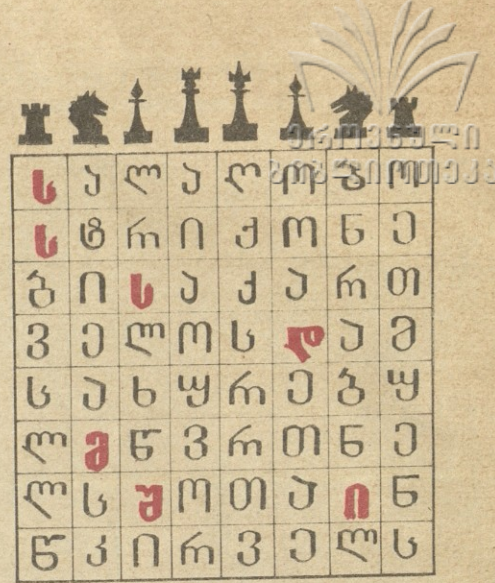 ეროვნული
ბიბლიოთეკა
ს ა ლ ა ღ ო ბ ო
ს ტ რ ი ქ ო ნ ე
ბ ი ს ა ქ ა რ თ
ვ ე ლ ო ს დ ა მ
ს ა ხ უ რ ე ბ უ
ლ მ წ ვ რ თ ნ ე
ლ ს შ ო თ ა ი ნ
წ კ ი რ ვ ე ლ ს